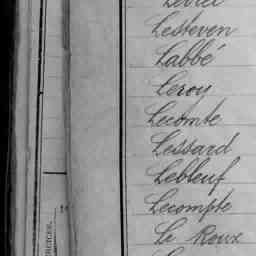 Lesteven
Labbé
Leroy
Lecomte
Lessard
Lebleuf
Lecompte
Le Roux